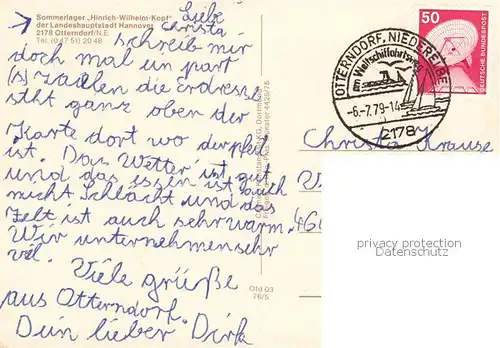 Sommerlager „Hinrich-Wilhelm-Kopf"
der Landeshauptstadt Hannover
2178 Otterndorf/N.E.
Tel. (0 47 51) 20 48
Liebe
Christa
schreib mir
doch mal un part
zaalen die Erdresse
stht ganz oben der
Karte dort wo der pfeil
ist. Das Wetter ist gut
und das essen ist auch
nicht Schlächt und das
Zelt ist auch sehr warm.
Wir unternemen sehr
vil. Viele grüße
aus Otterndorf.
Dein lieber Dirk
Otd 03
76/5
OTTERNDORF, NIEDERELBE
Am Weltschiffahrtsweg
-6.-7.79-14
2178
50
DEUTSCHE BUNDESPOST
Christa Krause
privacy protection
Datenschutz